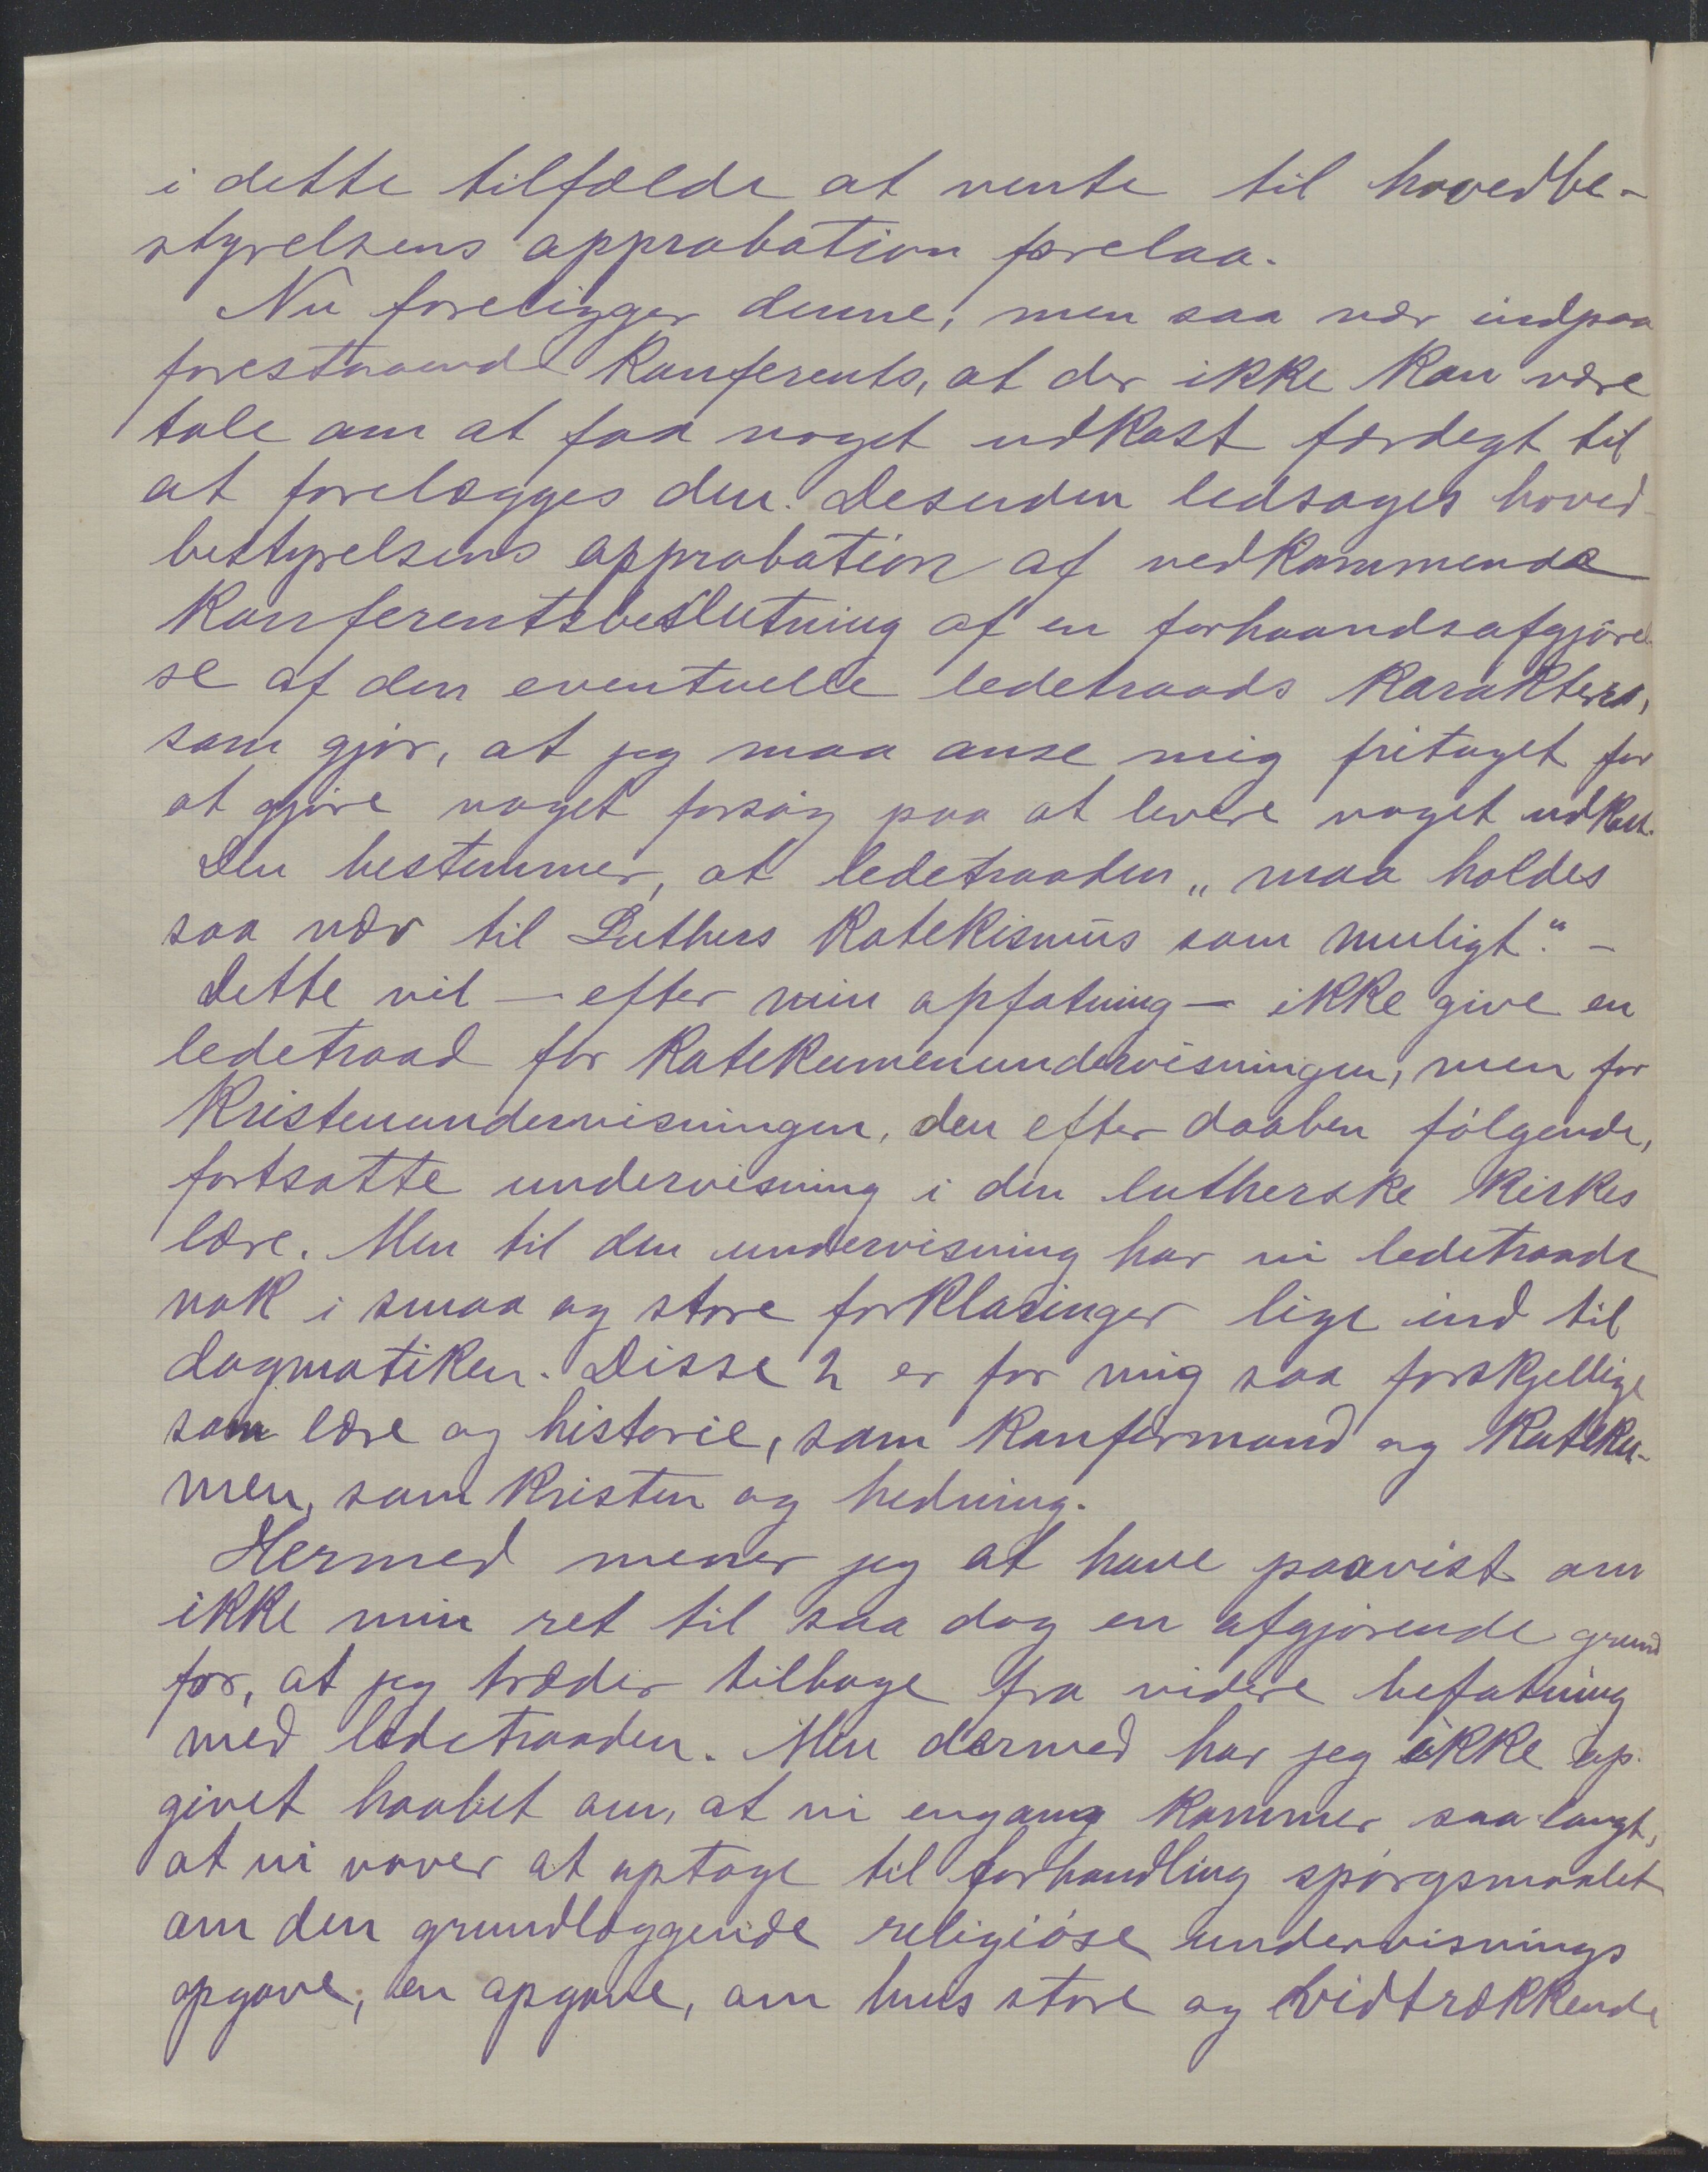 i dette tilfælde at vente til hovedbe-
styrelsens approbation forelaa.
Nu foreligger denne, men saa nær indpaa
forestaaende Konferents, at der ikke kan være
tale om at faa noget udkast færdigt til
at forelægges den. Desuden ledsages hoved-
bestyrelsens approbation af vedkommende
Konferentsbeslutning af en forhaandsafgjörel-
se af den eventuelle ledetraads karakter,
som gjør, at jeg maa anse mig fritaget for
at gjöre noget forsög paa at levere noget udkast.
Den bestemmer, at ledetraaden „maa holdes
saa nær til Luthers Katekismus som muligt." –
Dette vil – efter min opfatning – ikke give en
ledetraad for Katekumenundervisningen, men for
Kristenundervisningen, den efter daaben fölgende,
fortsatte undervisning i den lutherske kirkes
lære. Men til den undervisning har vi ledetraade
nok i smaa og store forklaringer lige ind til
dogmatiken. Disse 2 er for mig saa forskjellige
som lære og historie, som Konfirmand og Kateku-
men, som kristen og hedning.
Hermed mener jeg at have paavist om
ikke min ret til saa dog en afgjörende grund
for, at jeg træder tilbage fra videre befatning
med ledetraaden. Men dermed har jeg ikke op-
givet haabet om, at vi engang kommer saa langt,
at vi vover at optage til forhandling spörgsmaalet
om den grundlæggende religiöse undervisnings
opgave, en opgave, om hvis store og vidtrækkende